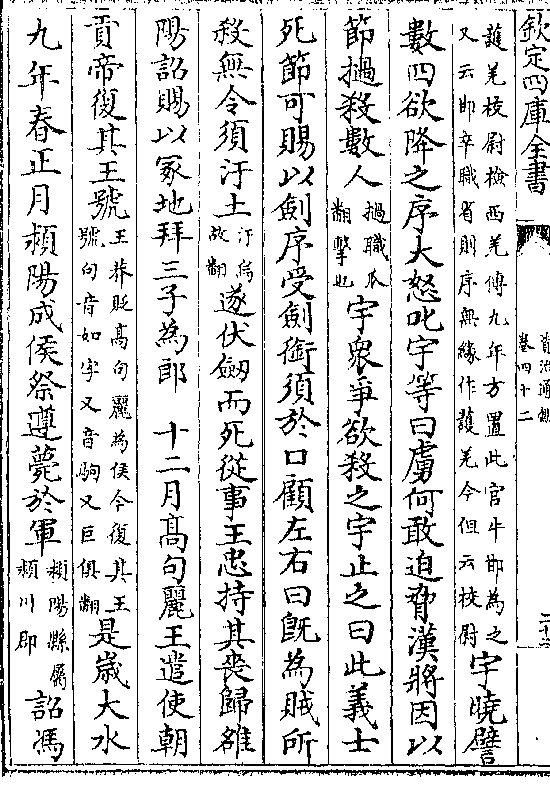 欽定四庫全書
資治通鑑
卷四十二
護羌校尉檢西羌傳九年方置此官牛邯為之
又云邯卒職省則序無緣作護羌今但云校尉
宇曉譬
數四欲降之序大怒叱宇等曰虜何敢迫脅漢將因以
節撾殺數人
撾職瓜
翻擊也
宇衆爭欲殺之宇止之曰此義士
死節可賜以劍序受劍銜須於口顧左右曰旣為賊所
殺無令須汙土
汙烏
故翻
遂伏劔而死從事王忠持其喪歸雒
陽詔賜以冢地拜三子為郎 十二月髙句麗王遣使朝
貢帝復其王號
王莽貶髙句麗為侯今復其王
號句音如字又音駒又巨俱翻
是歲大水
九年春正月潁陽成侯祭遵薨於軍
潁陽縣屬
潁川郡
詔馮